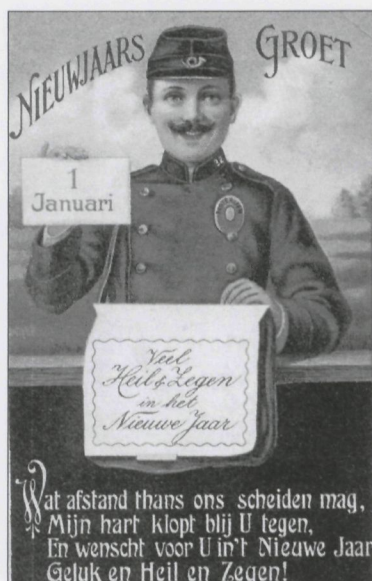 NIEUWJAARS GROET
1
Januari
Veel
Heil & Zegen
in het
Nieuwe Jaar
Wat afstand thans ons scheiden mag,
Mijn hart klopt blij U tegen,
En wenscht voor U in't Nieuwe Jaar
Geluk en Heil en Zegen!